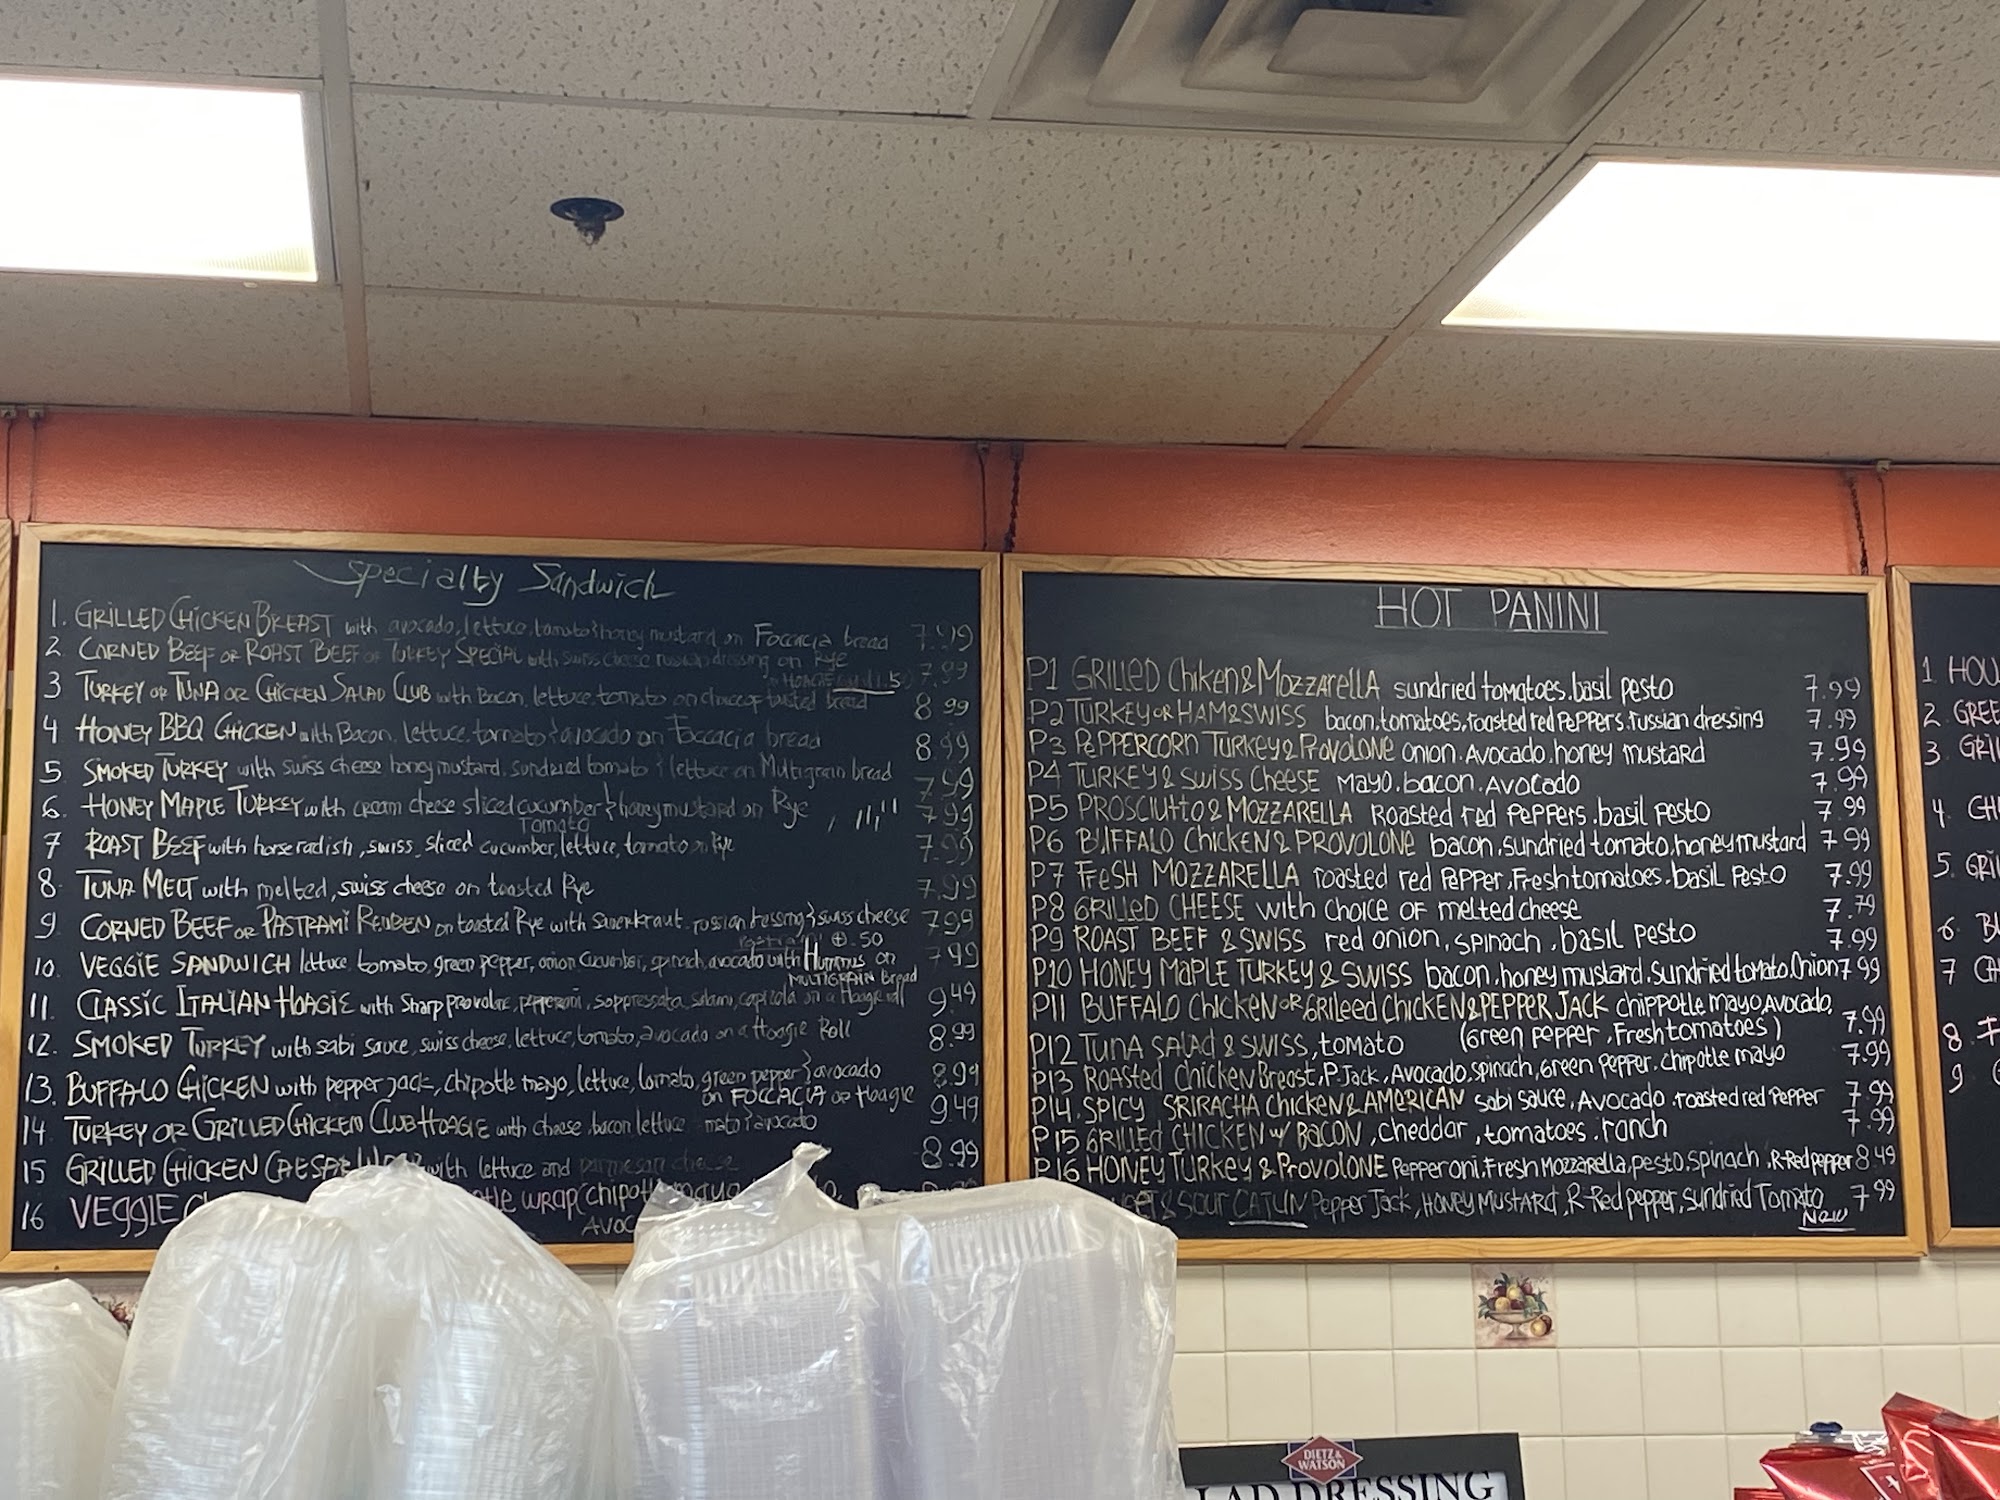 Specialty Sandwich
1. GRILLED CHICKEN BREAST with avocado, lettuce, tomato & honey mustard on Foccacia bread 7.99
2 CORNED BEEF or ROAST BEEF or TURKEY SPECIAL with swiss cheese russian dressing on Rye 7.99
3 TURKEY or TUNA or CHICKEN SALAD CLUB with Bacon, lettuce, tomato on choice of toasted bread 8.99
4 HONEY BBQ CHICKEN with Bacon, lettuce, tomato & avocado on Foccacia bread 8.99
5 SMOKED TURKEY with swiss cheese honey mustard, sundried tomato & lettuce on Multigrain bread 7.99
6. HONEY MAPLE TURKEY with cream cheese sliced cucumber & honey mustard on Rye 7.99
Tomato
7 ROAST BEEF with horseradish, swiss, sliced cucumber, lettuce, tomato on Rye 7.99
8. TUNA MELT with melted, swiss cheese on toasted Rye 7.99
9 CORNED BEEF or PASTRAMI REUBEN on toasted Rye with Sauerkraut, russian dressing & swiss cheese 7.99
.50
10. VEGGIE SANDWICH lettuce, tomato, green pepper, onion cucumber, spinach, avocado with Hummus on 7.99
MULTIGRAIN Bread
11. CLASSIC ITALIAN HOAGIE with Sharp provolone, pepperoni, soppressata, salami, capicola on a Hoagie roll 9.49
12. SMOKED TURKEY with sabi sauce, swiss cheese, lettuce, tomato, avocado on a Hoagie Roll 8.99
13. BUFFALO CHICKEN with pepper jack, chipotle mayo, lettuce, tomato, green pepper & avocado 8.99
on FOCCACIA or Hoagie
14 TURKEY OR GRILLED CHICKEN CLUB HOAGIE with cheese, bacon lettuce mato & avocado 9.49
15 GRILLED CHICKEN CAESAR with lettuce and parmesan cheese 8.99
16 VEGGIE wrap (chipotle mayo
AVOC
HOT PANINI
P1 GRILLED Chiken & MOZZARELLA sundried tomatoes. basil pesto 7.99
P2 TURKEY or HAM & SWISS bacon, tomatoes, roasted red peppers, russian dressing 7.99
P3 PEPPERCORN TURKEY & PROVOLONE onion. Avocado. honey mustard 7.99
P4 TURKEY & Swiss CHEESE Mayo. bacon. Avocado 7.99
P5 PROSCIUTTO & MOZZARELLA Roasted red peppers. basil pesto 7.99
P6 BUFFALO CHICKEN & PROVOLONE bacon, sundried tomato, honey mustard 7.99
P7 FRESH MOZZARELLA roasted red pepper, Fresh tomatoes. basil pesto 7.99
P8 GRILLED CHEESE with choice of melted cheese 7.79
P9 ROAST BEEF & SWISS red onion, spinach, basil pesto 7.99
P10 HONEY MAPLE TURKEY & SWISS bacon, honey mustard, Sundried tomato, Onion 7.99
P11 BUFFALO CHICKEN OR Grileed CHICKEN & PEPPER JACK chippotle mayo, Avocado,
(Green pepper, Fresh tomatoes) 7.99
P12 TUNA SALAD & SWISS, tomato 7.99
P13 ROASTED Chicken Breast, P.Jack, Avocado, spinach, Green pepper, chipotle mayo
P14. SPICY SRIRACHA Chicken & AMERICAN sabi sauce, Avocado. roasted red pepper 7.99
P15 GRILLED CHICKEN w/ BACON, cheddar, tomatoes. ranch 7.99
P16 HONEY TURKEY & PROVOLONE Pepperoni, Fresh Mozzarella, pesto, spinach, R-Red pepper 8.49
& SOUR CAJUN Pepper Jack, HONEY MUSTARD, R-Red pepper, sundried Tomato 7.99
New
1. HOU
2. GREE
3. GRIL
4. CH
5. GRI
6 BU
7 CH
8
9
DIETZ &
WATSON
LAD DRESSING